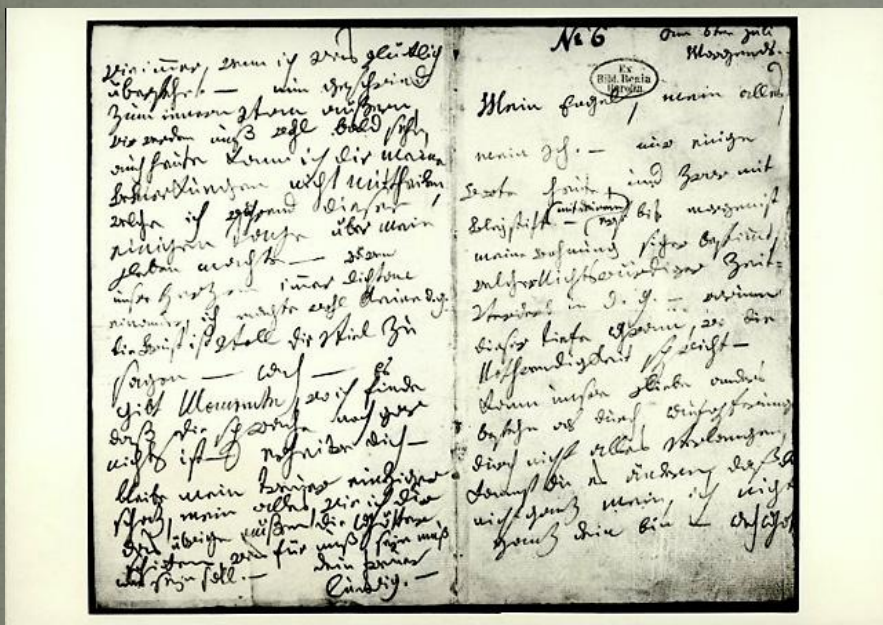 wie immer, wenn ich was glücklich
überstehe. — nun geschwind
zum innern vom aüßern,
wir werden unß wohl bald sehn,
auch heute kann ich dir meine
Bemerkungen nicht mittheilen,
welche ich während dieser
einigen Tage über mein
Leben machte — wären
unsre Herzen immer dicht an
einander, ich machte wohl keine d.g.
die Brust ist voll dir viel zu
sagen — Ach — es
gibt Momente, wo ich finde
daß die sprache noch gar
nichts ist — erheitre dich —
bleibe mein treuer einziger
schaz, mein alles, wie ich dir
das übrige müßen die Götter
schicken, was für unß sein muß
und seyn soll. —
dein treuer
ludwig. —
No 6
am 6ten Juli
Morgends. —
Ex
Bibl. Regia
Berolin
Mein Engel, mein alles,
mein Ich. — nur einige
Worte heute, und zwar mit
Bleystift — (mit deinem)
erst bis morgen ist
meine Wohnung sicher bestimmt,
welcher Nichtswürdiger Zeit-
verderb in d. g. — warum
dieser tiefe Gram, wo die
Nothwendigkeit spricht —
Kann unsre Liebe anders
bestehn als durch Aufopferungen,
durch nicht alles verlangen,
kannst du es ändern, daß du
nicht ganz mein, ich nicht
ganz dein bin — Ach Gott